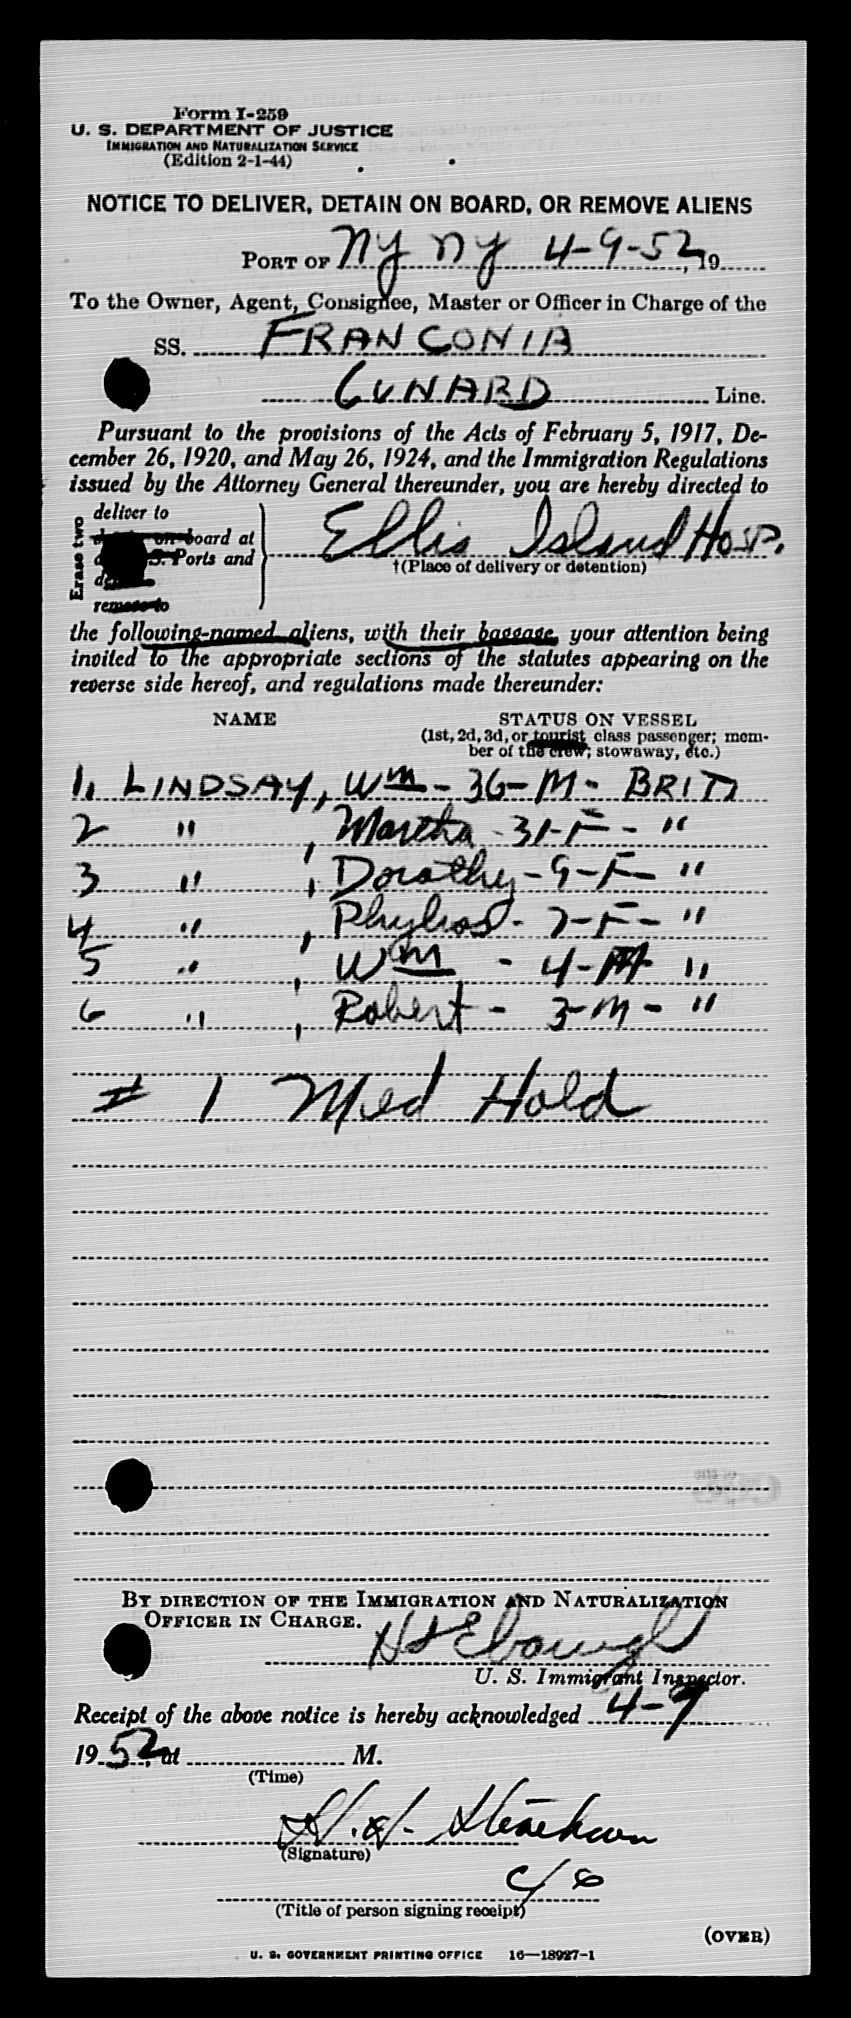 Form I-259
U. S. DEPARTMENT OF JUSTICE
IMMIGRATION AND NATURALIZATION SERVICE
(Edition 2-1-44)
NOTICE TO DELIVER, DETAIN ON BOARD, OR REMOVE ALIENS
PORT OF NY NY 4-9-52, 19
To the Owner, Agent, Consignee, Master or Officer in Charge of the
SS. FRANCONIA
CUNARD Line.
Pursuant to the provisions of the Acts of February 5, 1917, De-
cember 26, 1920, and May 26, 1924, and the Immigration Regulations
issued by the Attorney General thereunder, you are hereby directed to
Erase two
deliver to
on board at
S. Ports and
remove to
Ellis Island Hosp.
†(Place of delivery or detention)
the following-named aliens, with their baggage, your attention being
invited to the appropriate sections of the statutes appearing on the
reverse side hereof, and regulations made thereunder:
NAME STATUS ON VESSEL
(1st, 2d, 3d, or tourist class passenger; mem-
ber of the crew; stowaway, etc.)
1, LINDSAY, Wm - 36 - M - BRIT
2 " , Martha - 31 - F - "
3 " , Dorothy - 9 - F - "
4 " , - 7 - F - "
5 " , Wm - 4 - M "
6 " , Robert - 3 - M - "
# 1 Med Hold
BY DIRECTION OF THE IMMIGRATION AND NATURALIZATION
OFFICER IN CHARGE.
U. S. Immigrant Inspector.
Receipt of the above notice is hereby acknowledged 4-9
19 52, at M.
(Time)
(Signature)
(Title of person signing receipt)
(OVER)
U. S. GOVERNMENT PRINTING OFFICE 16—18927-1